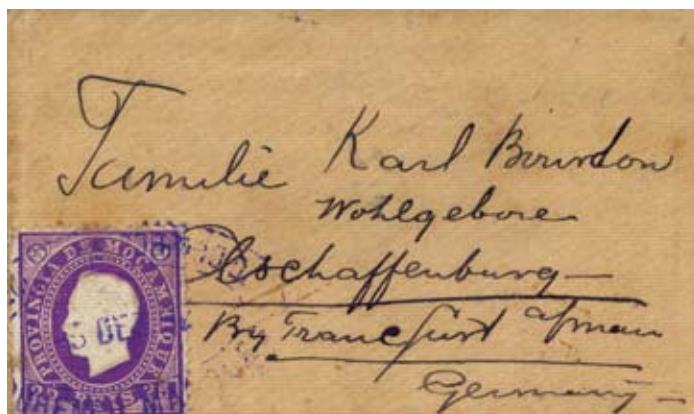 Familie Karl Bourdon
Wohlgebore
Aschaffenburg
By Francfurt a/main
Germany
PROVINCIA DE MOÇAMBIQUE